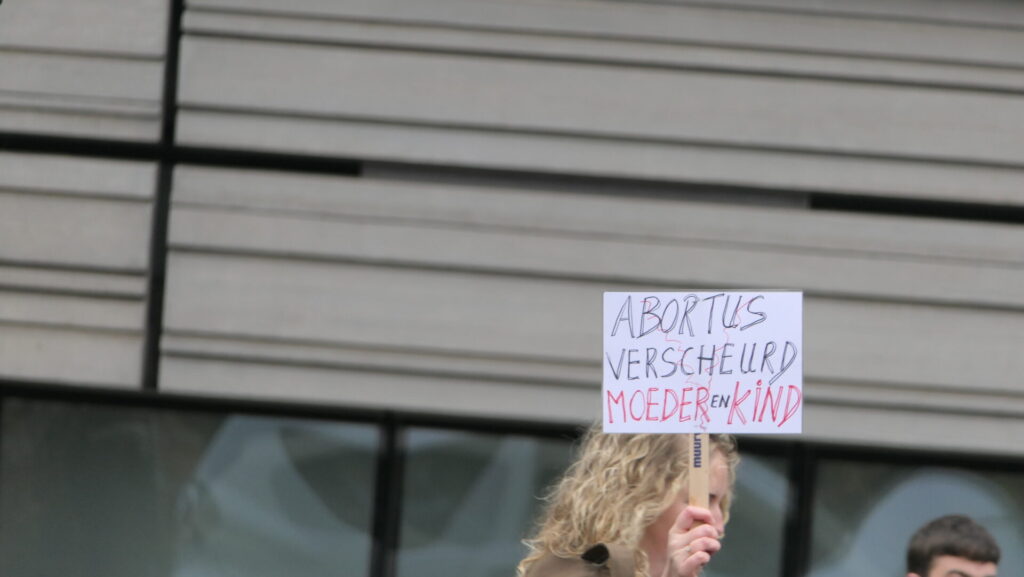 ABORTUS
VERSCHEURD
MOEDER EN KIND